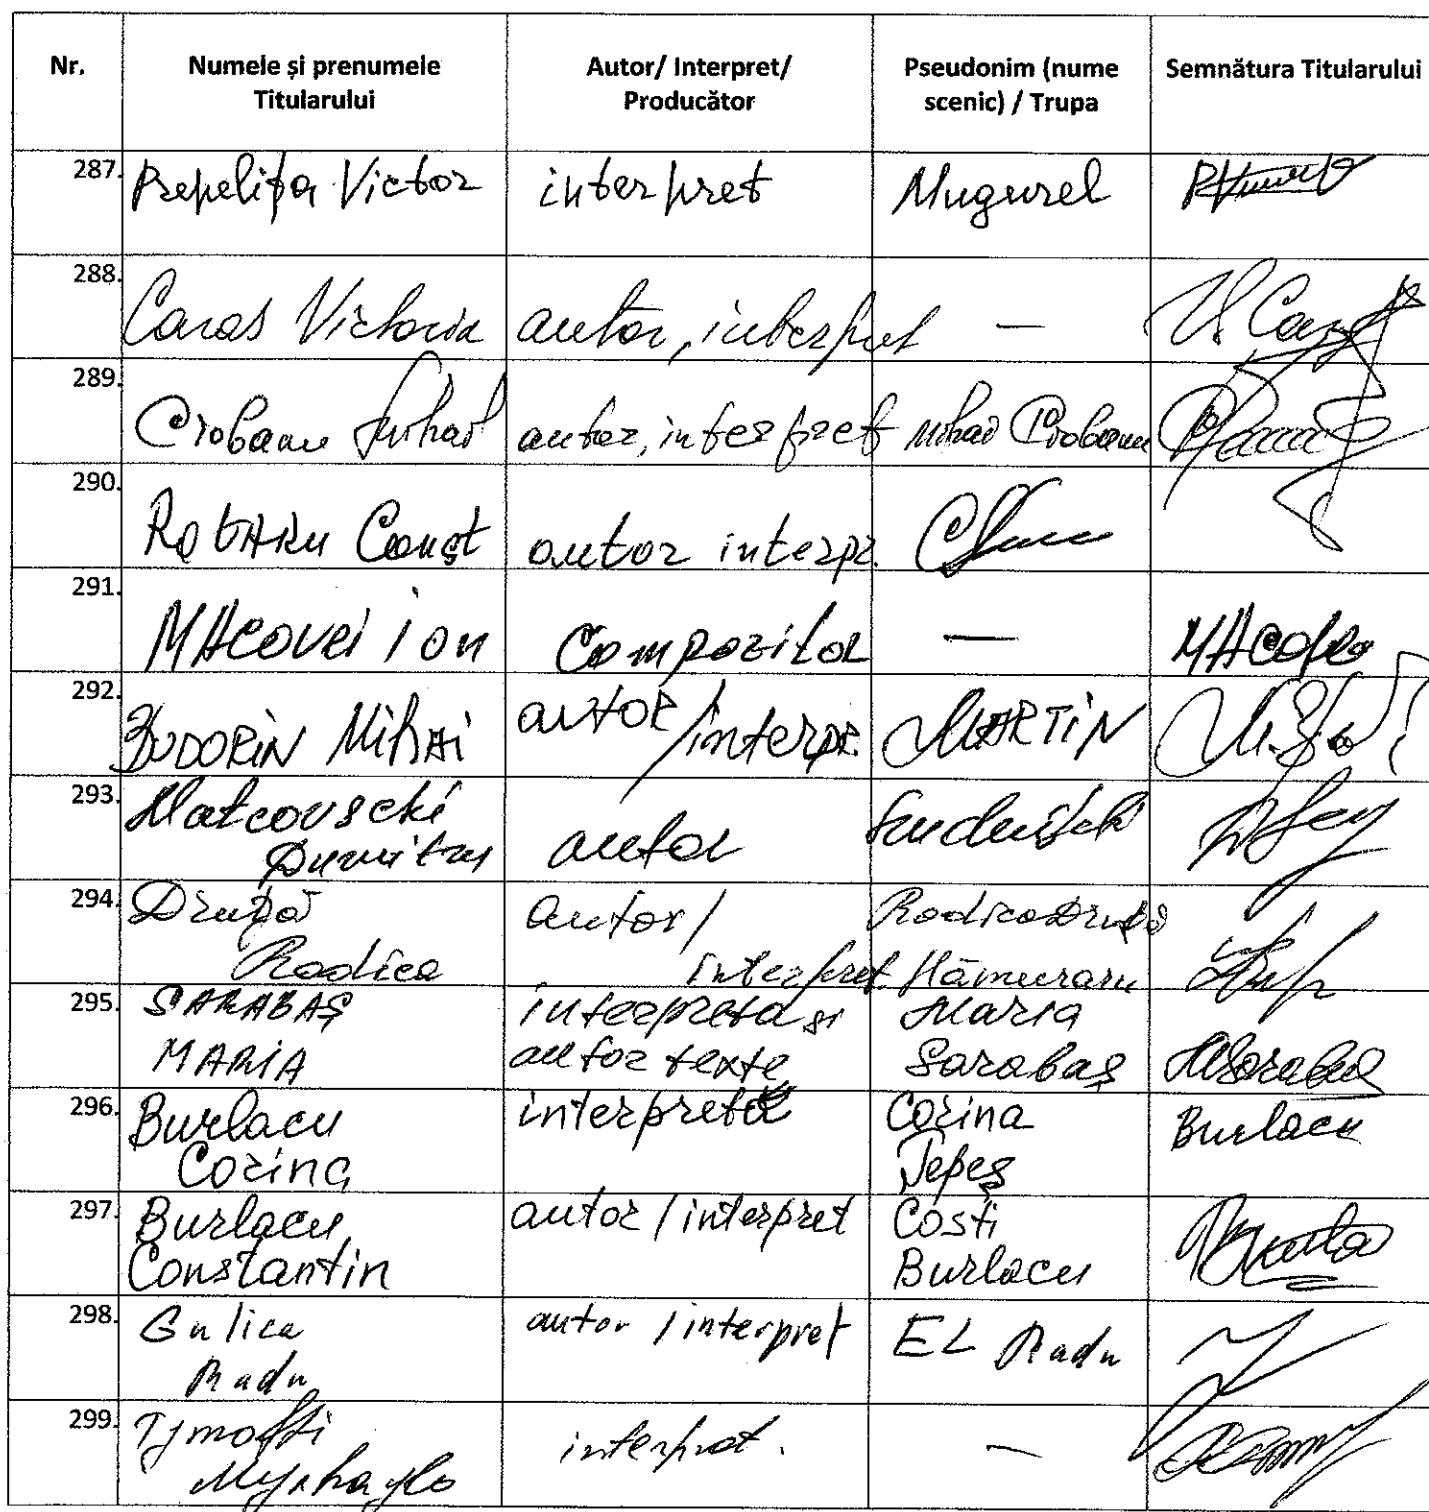 Nr. Numele și prenumele Titularului Autor/ Interpret/ Producător Pseudonim (nume scenic) / Trupa Semnătura Titularului
287. Prepelița Victor interpret Mugurel
288. Caras Victoria autor, interpret —
289. Ciobanu Mihai autor, interpret Mihai Ciobanu
290. Rotaru Const autor interpr.
291. MAcovei ion Compozitor —
292. BUDORIN Mihai autor/interpr. MARTIN
293. Matcovschi Dumitru autor
294. Druță Rodica autor/ interpret Rodica Druță Hămuraru
295. SARABAȘ MARIA interpretă și autor texte Maria Sarabaș
296. Burlacu Corina interpretă Corina Țepeș Burlacu
297. Burlacu Constantin autor / interpret Costi Burlacu
298. Gulica Radu autor / interpret EL Radu
299. Tymofti Mykhaylo interpret. —